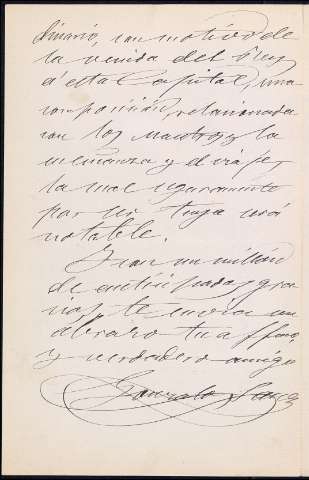 dinario, con motivo de
la venida del Rey
á esta Capital, una
composición, relacionada
con los maestros y la
enseñanza y el viaje,
la cual seguramente
por ser tuya será
notable.
Gran un millón
de anticipadas gra
cias te envia un
abrazo tu affmo,
y verdadero amigo
Gonzalo Sanz